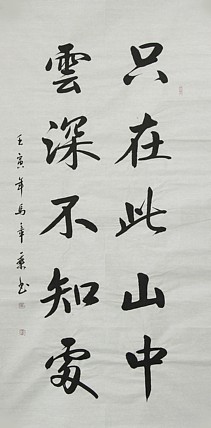 只在此山中
雲深不知處
壬寅年馬年乘书